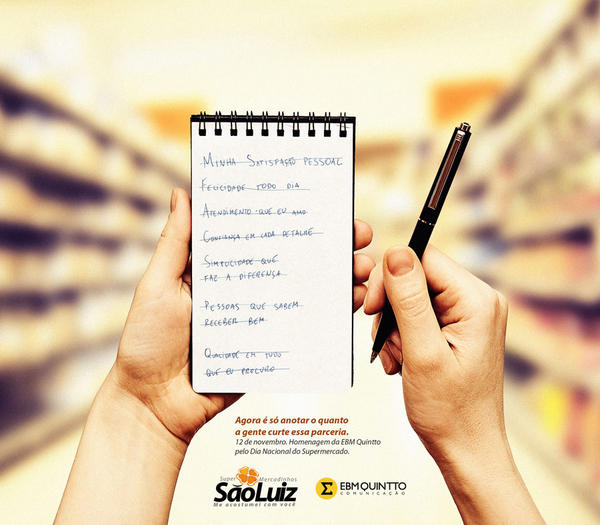 MINHA SATISFAÇÃO PESSOAL
FELICIDADE TODO DIA
ATENDIMENTO QUE EU AMO
CONFIANÇA EM CADA DETALHE
SIMPLICIDADE QUE
FAZ A DIFERENÇA
PESSOAS QUE SABEM
RECEBER BEM
QUALIDADE EM TUDO
QUE EU PROCURO
Agora é só anotar o quanto
a gente curte essa parceria.
12 de novembro. Homenagem da EBM Quintto
pelo Dia Nacional do Supermercado.
Super Mercadinhos
SãoLuiz
Me acostumei com você
Σ EBM QUINTTO
COMUNICAÇÃO